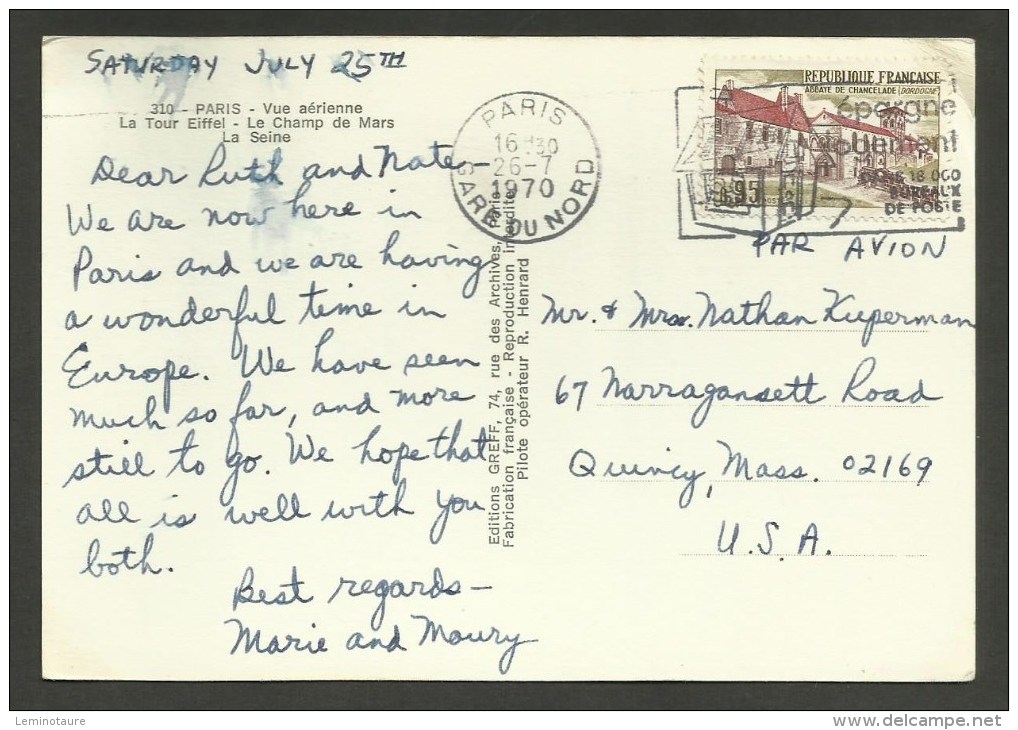 SATURDAY JULY 25TH
310 - PARIS - Vue aérienne
La Tour Eiffel - Le Champ de Mars
La Seine
Dear Ruth and Nate-
We are now here in
Paris and we are having
a wonderful time in
Europe. We have seen
much so far, and more
still to go. We hope that
all is well with you
both.
Best regards-
Marie and Maury
Editions GREFF, 74, rue des Archives, Paris
Fabrication française - Reproduction interdite
Pilote opérateur R. Henrard
PARIS
16 H30
26-7
1970
GARE DU NORD
REPUBLIQUE FRANÇAISE
ABBAYE DE CHANCELADE (DORDOGNE)
0,95
épargne
18 000
BUREAUX
DE POSTE
PAR AVION
Mr. & Mrs. Nathan Kuperman
67 Narragansett Road
Quincy, Mass. 02169
U.S.A.
Leminotaure
www.delcampe.net